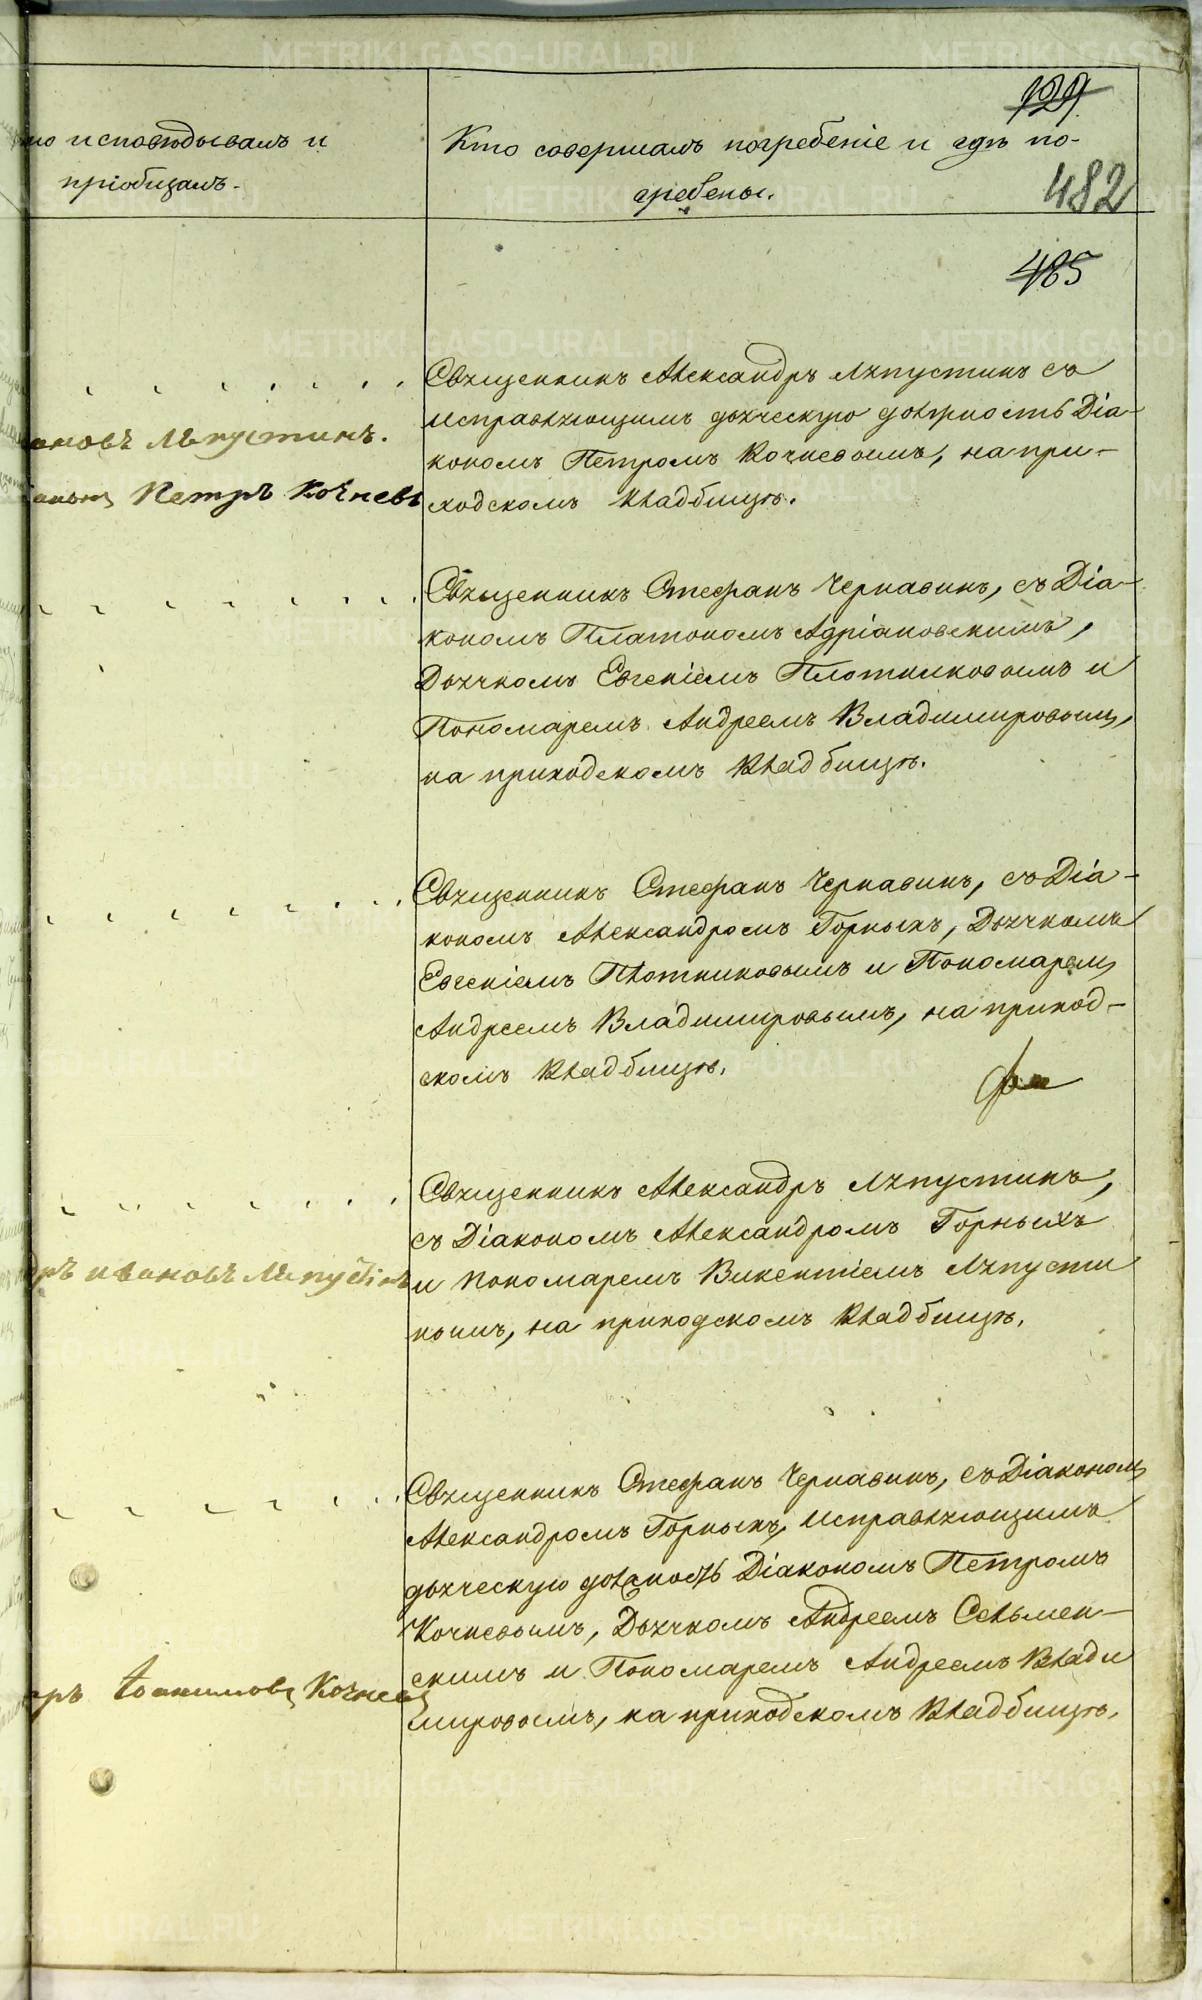 129
то исповѣдывалъ и
пріобщалъ.
Кто совершалъ погребеніе и гдѣ по-
гребены.
482
485
Священникъ Александръ Ляпустинъ съ
исправляющимъ дьяческую должность Діа-
кономъ Петромъ Кочневымъ, на при-
ходскомъ кладбищѣ.
ановъ Ляпустинъ.
Петръ Кочневъ
Священникъ Стефанъ Чернавинъ, съ Діа-
кономъ Платономъ Адріановскимъ,
Дьячкомъ Евгеніемъ Плотниковымъ и
Пономаремъ Андреемъ Владимировымъ,
на приходскомъ кладбищѣ.
Священникъ Стефанъ Чернавинъ, съ Діа-
кономъ Александромъ Горныхъ, Дьячкомъ
Евгеніемъ Плотниковымъ и Пономаремъ
Андреемъ Владимировымъ, на приход-
скомъ кладбищѣ.
Священникъ Александръ Ляпустинъ,
съ Діакономъ Александромъ Горныхъ
и Пономаремъ Викентіемъ Ляпусти
нымъ, на приходскомъ кладбищѣ.
дръ ивановъ Ляпустинъ
Священникъ Стефанъ Чернавинъ, съ Діакономъ
Александромъ Горныхъ, исправляющимъ
дьяческую должность Діакономъ Петромъ
Кочневымъ, Дьячкомъ Андреемъ Сельмен-
скимъ и Пономаремъ Андреемъ Влади
мировымъ, на приходскомъ кладбищѣ.
тръ Іоакимовъ Кочневъ
METRIKI.GASO-URAL.RU